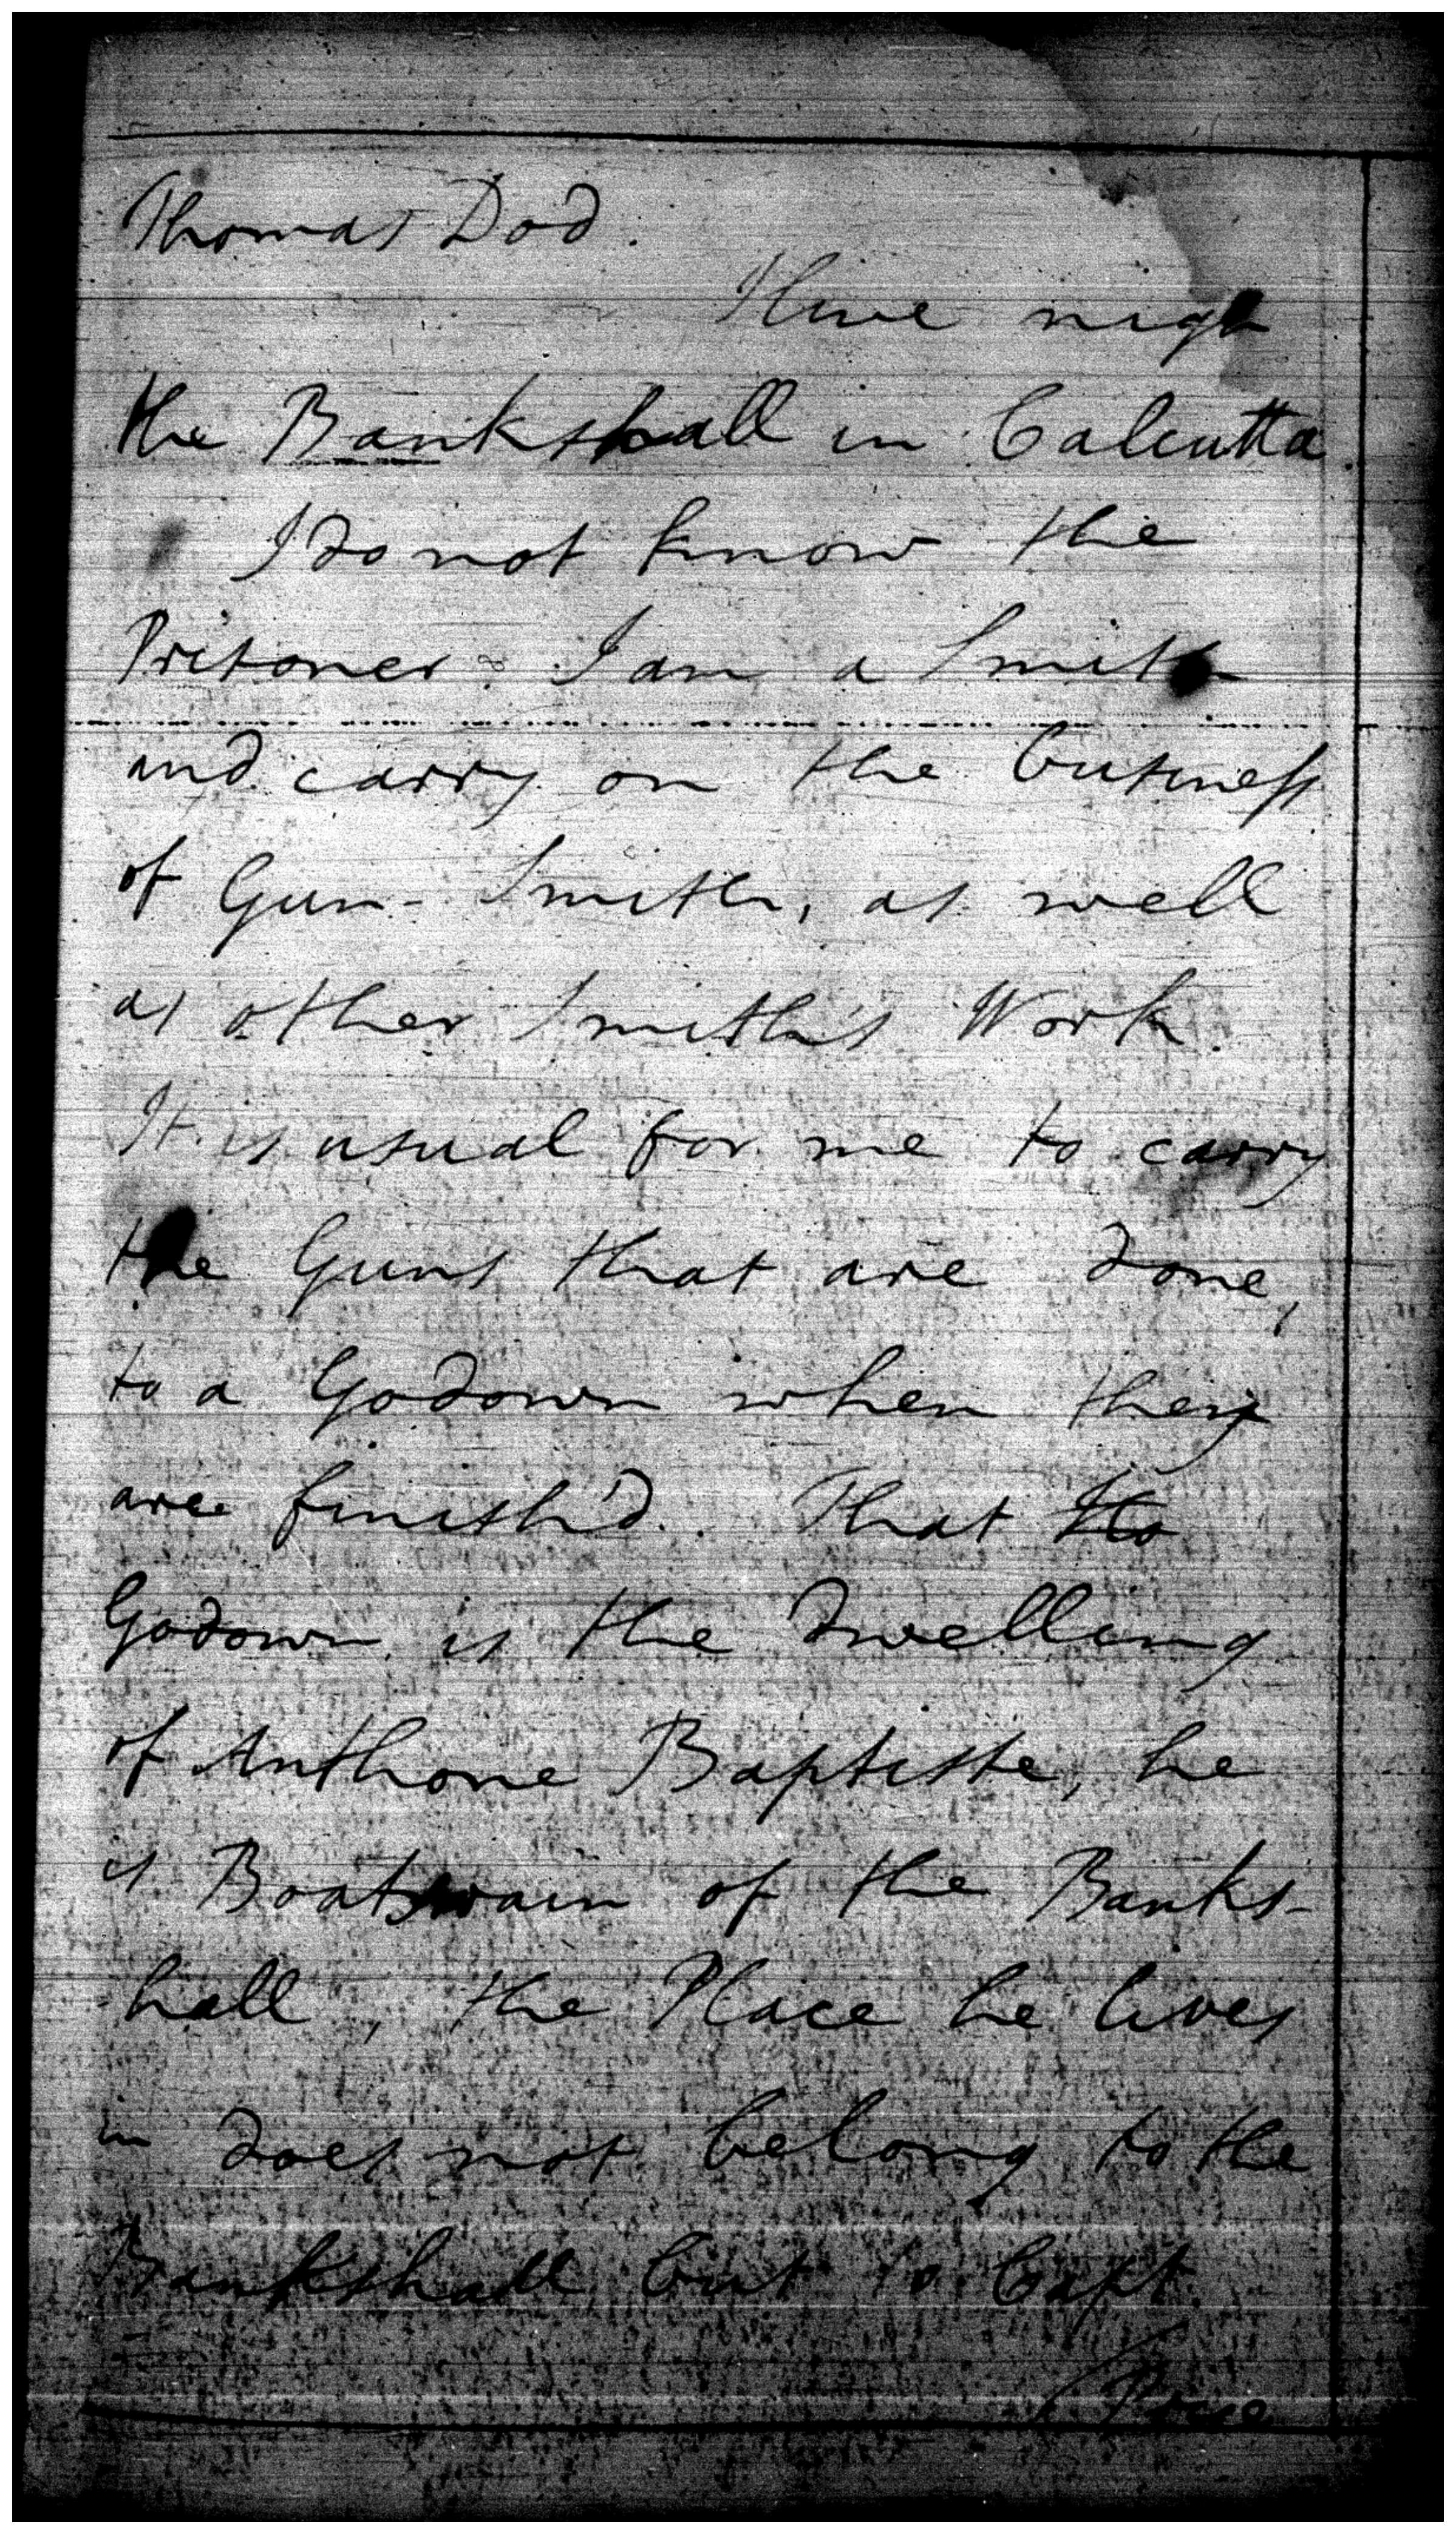 Thomas Dod.
I live nigh
the Bankshall in Calcutta.
I do not know the
Prisoner. I am a Smith
and carry on the business
of Gun-Smith, as well
as other Smith's Work.
It is usual for me to carry
the Guns that are done,
to a Godown when they
are finish'd. That
Godown is the Dwelling
of Anthone Baptiste, he
is Boatswain of the Banks-
hall, the Place he lives
in does not belong to the
Bankshall but to Capt.